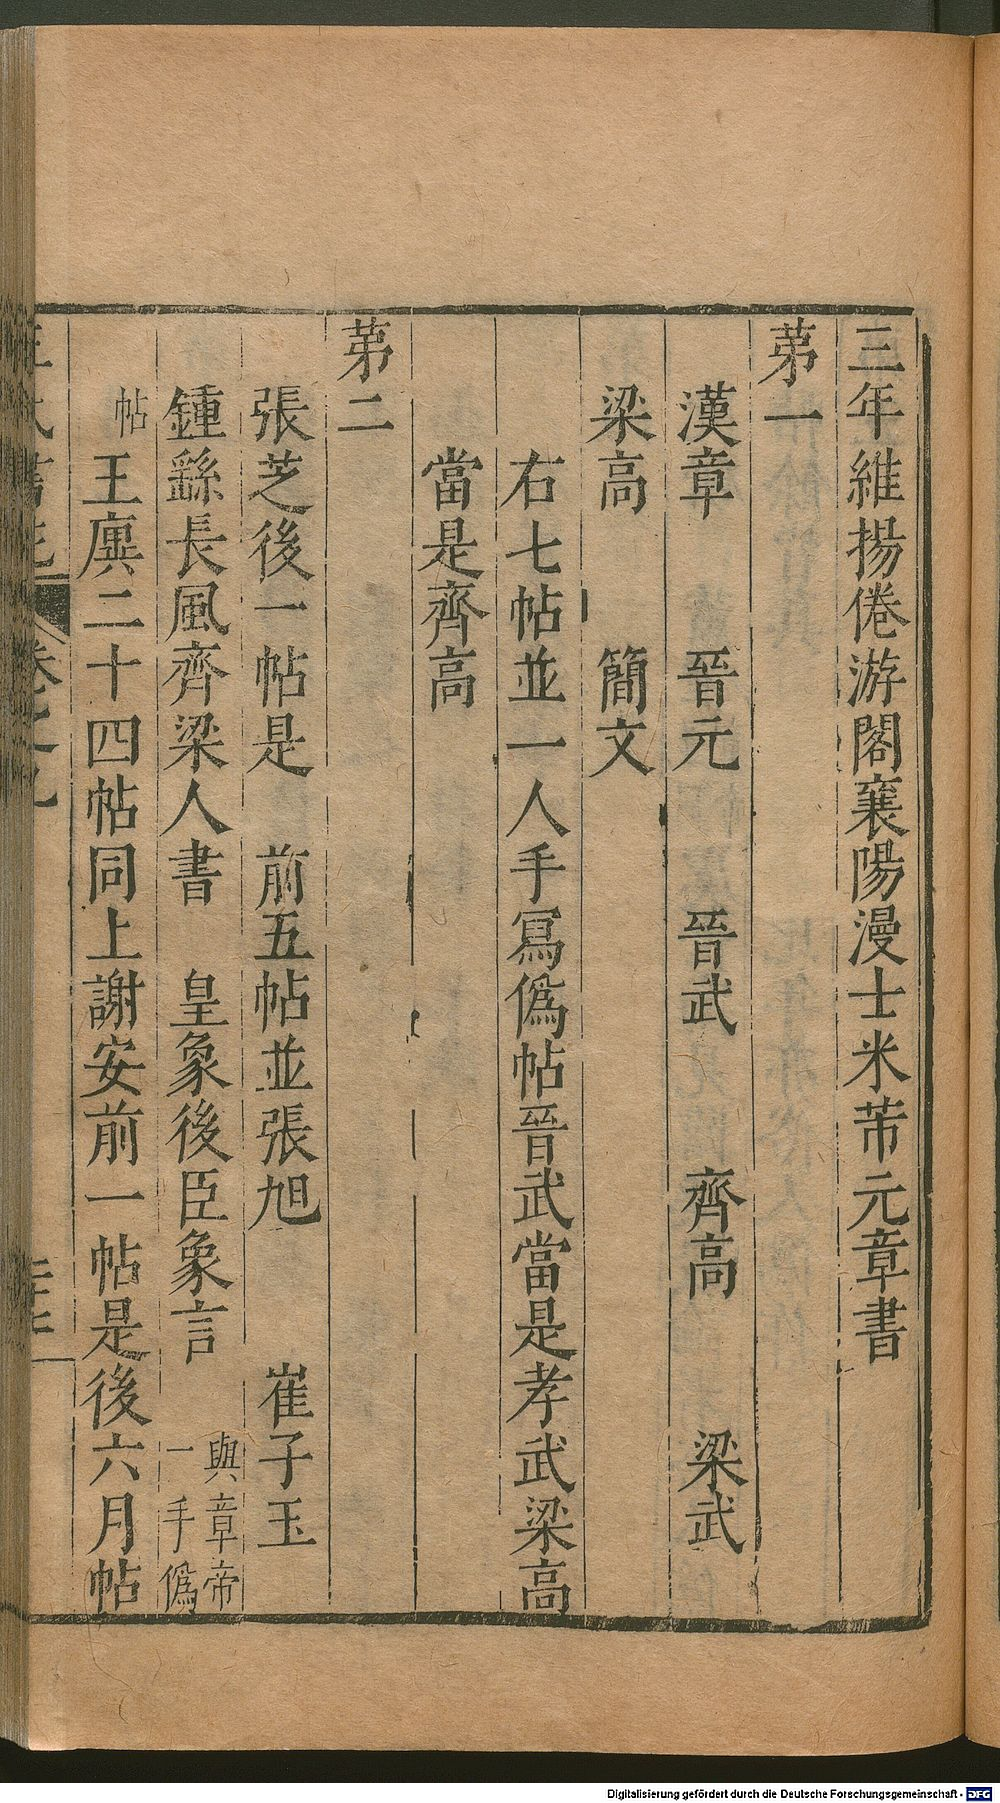 三年維揚倦游閣襄陽漫士米芾元章書
苐一
漢章　晉元　晉武　齊高　梁武
梁高　簡文
右七帖並一人手冩僞帖晉武當是孝武梁高
當是齊高
苐二
張芝後一帖是　前五帖並張旭　崔子玉
鍾繇長風齊梁人書　皇象後臣象言 與章帝
一手僞
帖　王廙二十四帖同上謝安前一帖是後六月帖
卷之九
Digitalisierung gefördert durch die Deutsche Forschungsgemeinschaft - DFG